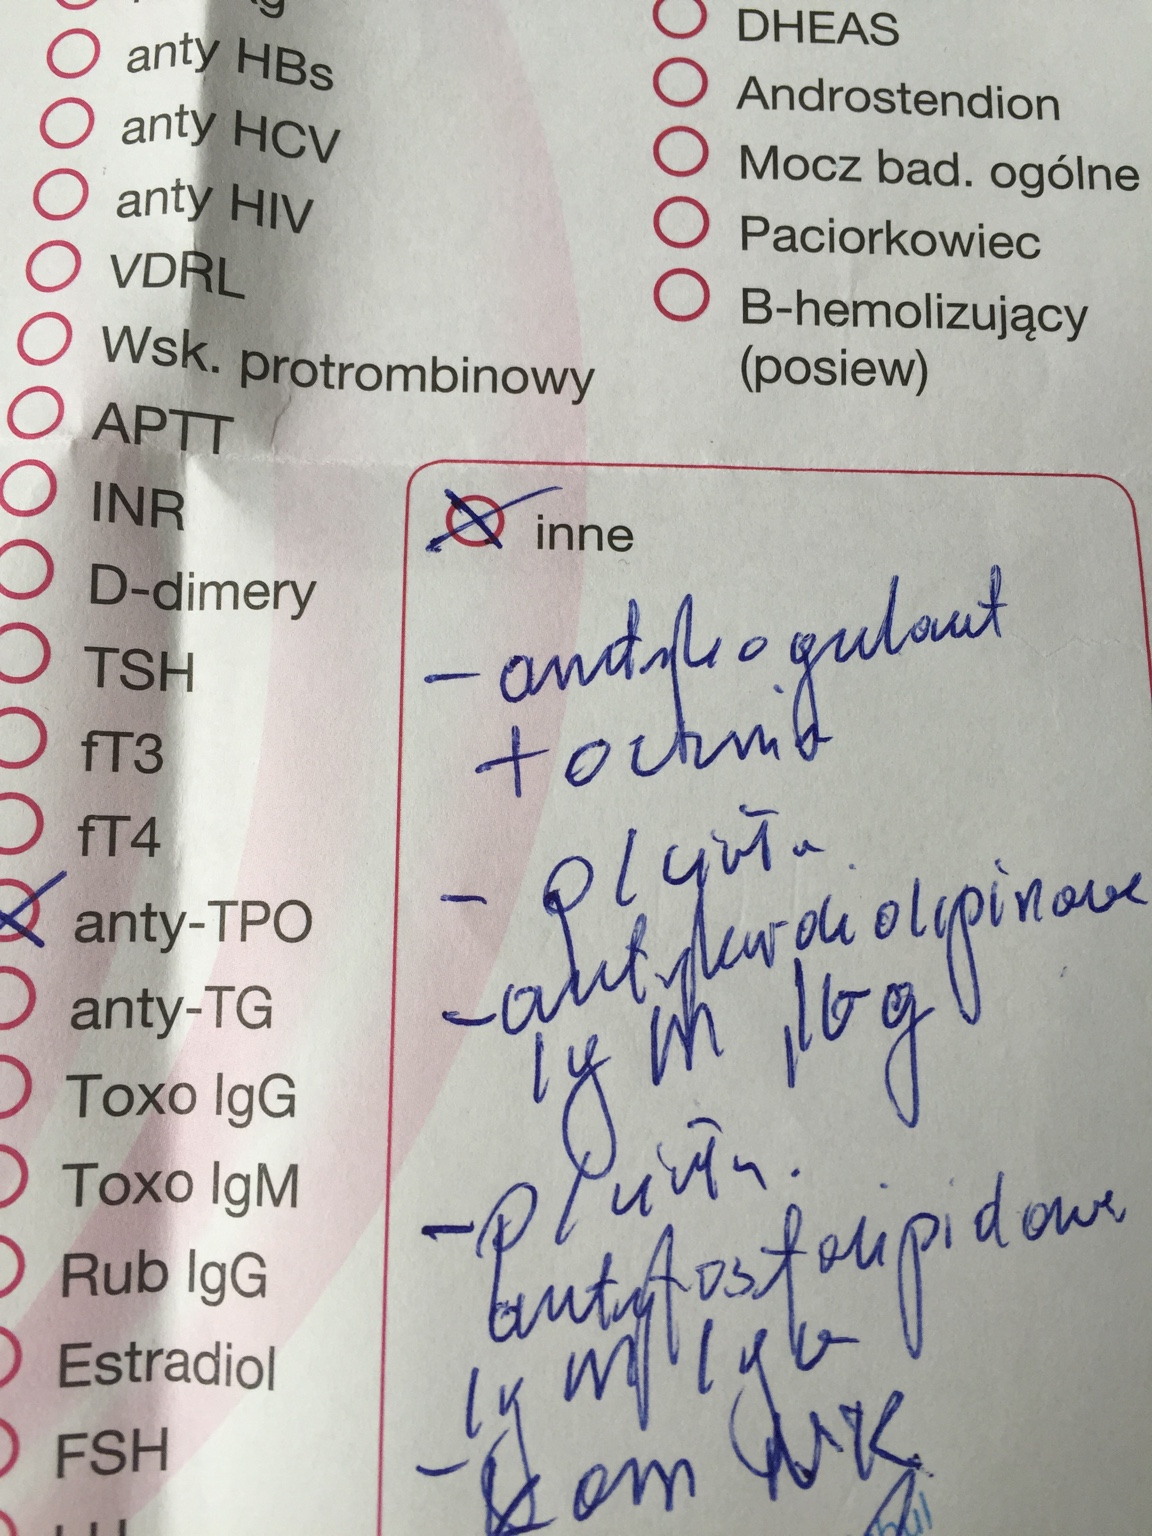 anty HBs
anty HCV
anty HIV
VDRL
Wsk. protrombinowy
APTT
INR
D-dimery
TSH
fT3
fT4
anty-TPO
anty-TG
Toxo IgG
Toxo IgM
Rub IgG
Estradiol
FSH
DHEAS
Androstendion
Mocz bad. ogólne
Paciorkowiec
B-hemolizujący
(posiew)
inne
- antykoagulant
tocznia
- P/ciała
- antykardiolipinowe
IgM, IgG
- P/ciała
antyfosfolipidowe
IgM IgG
- kom NK